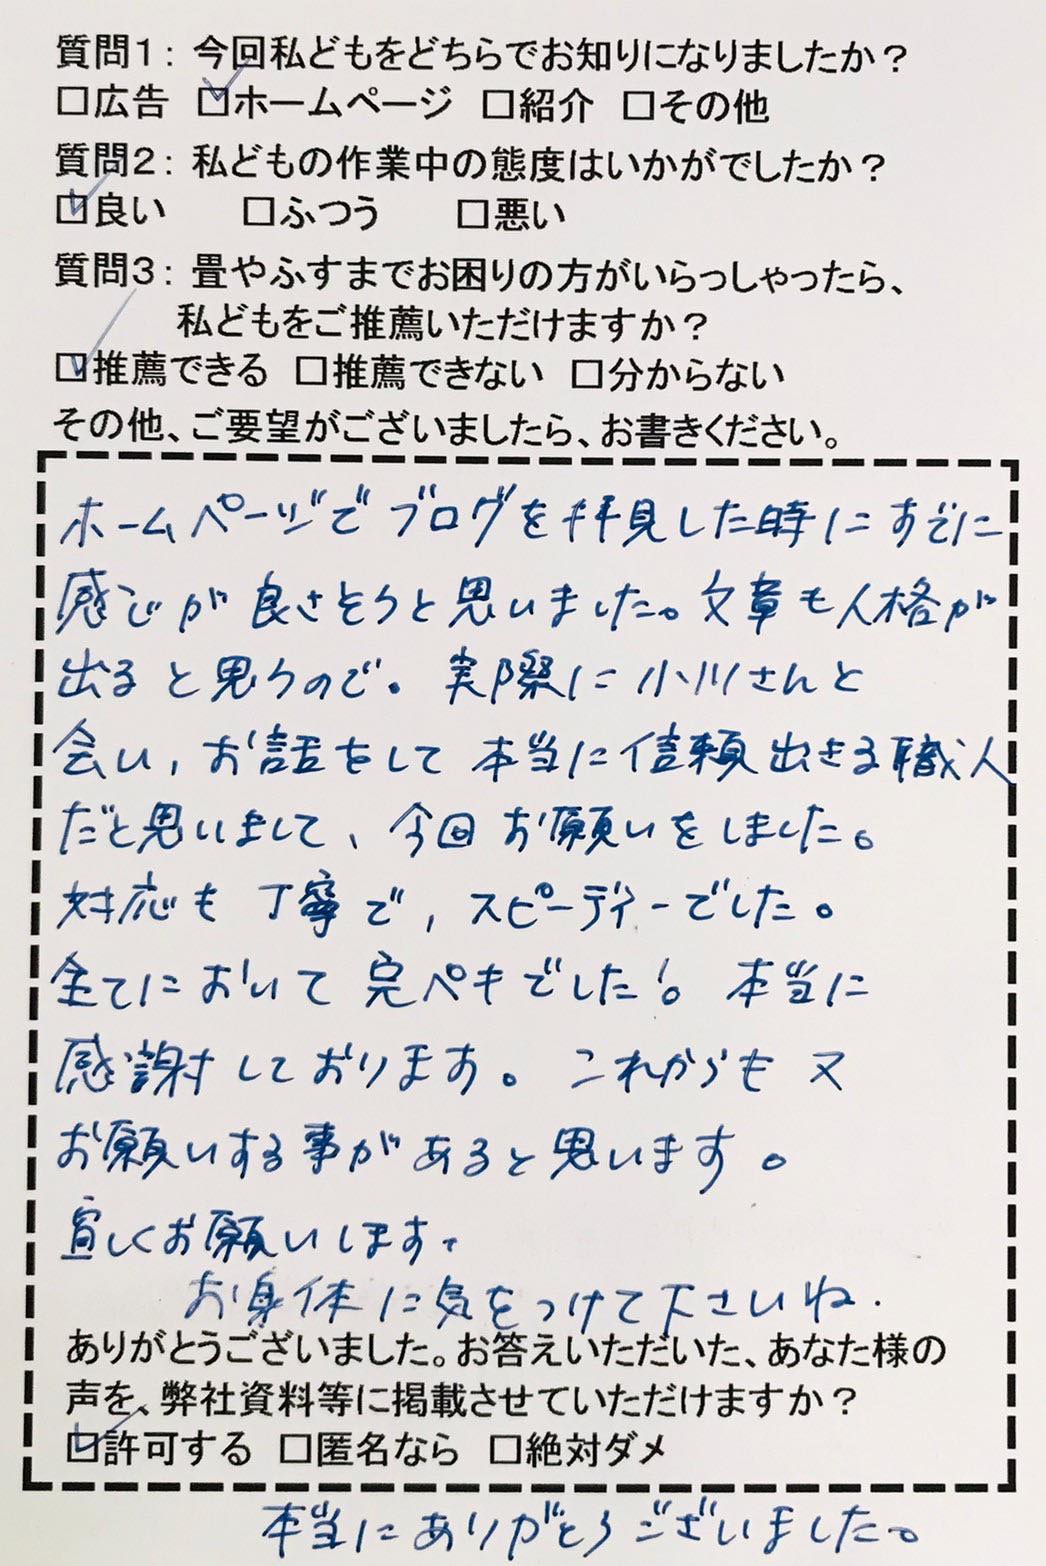 質問1：今回私どもをどちらでお知りになりましたか？
□広告 ☑ホームページ □紹介 □その他
質問2：私どもの作業中の態度はいかがでしたか？
☑良い □ふつう □悪い
質問3：畳やふすまでお困りの方がいらっしゃったら、
私どもをご推薦いただけますか？
☑推薦できる □推薦できない □分からない
その他、ご要望がございましたら、お書きください。
ホームページでブログを拝見した時にすでに
感じが良さそうと思いました。文章も人格が
出ると思うので。実際に小川さんと
会い、お話をして本当に信頼出きる職人
だと思いまして、今回お願いをしました。
対応も丁寧で、スピーディーでした。
全てにおいて完ペキでした！。本当に
感謝しております。これからも又
お願いする事があると思います。
宜しくお願いします。
お身体に気をつけて下さいね.
ありがとうございました。お答えいただいた、あなた様の
声を、弊社資料等に掲載させていただけますか？
☑許可する □匿名なら □絶対ダメ
本当にありがとうございました。